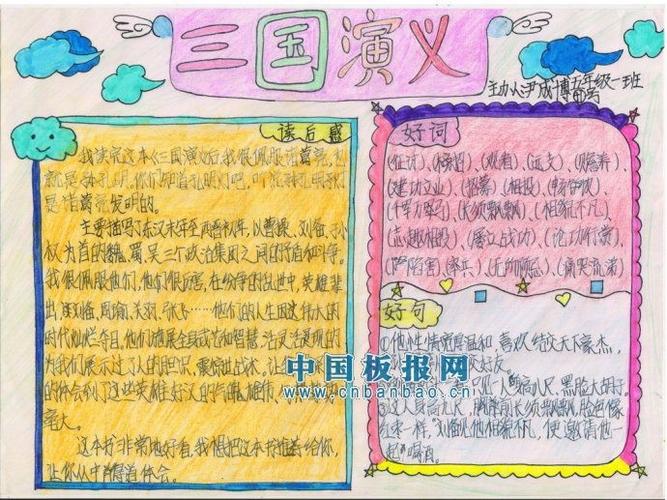 三国演义
主办人尹成博五年级一班
读后感
我读完这本《三国演义》后,我很佩服诸葛亮,也
就是孔明,你们知道孔明灯吧,听说孔明灯
是诸葛亮发明的。
主要描写了东汉末年至西晋初年,以曹操、刘备、孙
权为首的魏、蜀、吴三个政治集团之间的矛盾和斗争。
我很佩服他们,他们很厉害,在纷争的乱世中,英雄辈
出,刘备、周瑜、关羽、张飞……他们的人生因这伟大的
的代灿烂夺目,他们施展全身武艺和智慧,活灵活现的
为我们展示过了人的胆识,震惊世战术。让
的体会到了这些英雄好汉的
高大。
这本书非常地好看,我想把这本书推荐给你,
让你从中得道体会。
好词
(征讨)、(榜招)、(观看)、(远支)、
(建功立业)、(招募)、(相投)
(长须飘飘)、(相貌不凡)
(志趣相投)、(屡立战功)、(论功行赏)
(陷害)、(痛哭流涕)
好句
①他性情宽厚温和 喜欢结交天下豪杰,
交好友。
②人身高八尺,黑脸大胡子。
③这人身高九尺,胸前长须飘飘,脸色像
红枣一样,刘备见他相貌不凡,便邀请他一
起喝酒。
中国板报网
www.cnbanbao.cn